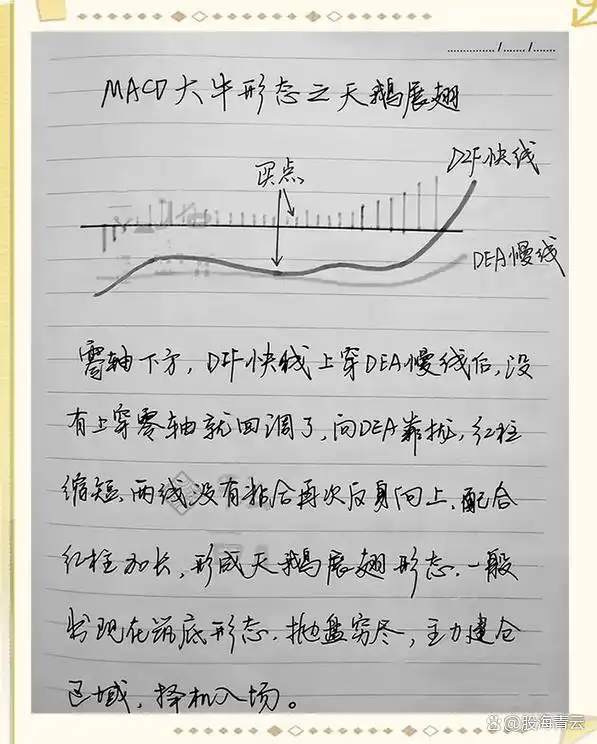 ................/......./.......
MACD大牛形态之天鹅展翅
买点
DIF快线
DEA慢线
零轴下方，DIF快线上穿DEA慢线后，没
有上穿零轴就回调了，向DEA靠拢，红柱
缩短，两线没有粘合再次反身向上，配合
红柱加长，形成天鹅展翅形态，一般
出现在筑底形态，抛盘穷尽，主力建仓
区域，择机入场。
股海青云